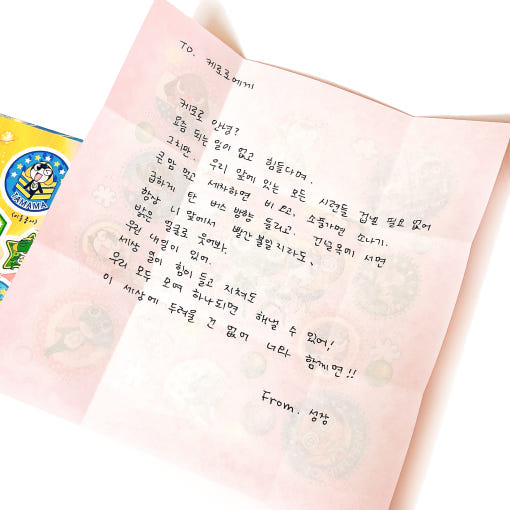 TO. 케로로에게
케로로 안녕?
요즘 되는 일이 없고 힘들다며.
그치만. 우리 앞에 있는 모든 시련들 겁낼 필요 없어
큰맘 먹고 세차하면 비 오고, 소풍가면 소나기.
급하게 탄 버스 방향 틀리고. 건널목에 서면
항상 니 앞에서 빨간불일지라도,
밝은 얼굴로 웃어봐.
우린 내일이 있어.
세상 일이 힘이 들고 지쳐도
우리 모두 모여 하나되면 해낼 수 있어!
이 세상에 두려울 건 없어 너와 함께면!!
From. 성장
TAMAMA